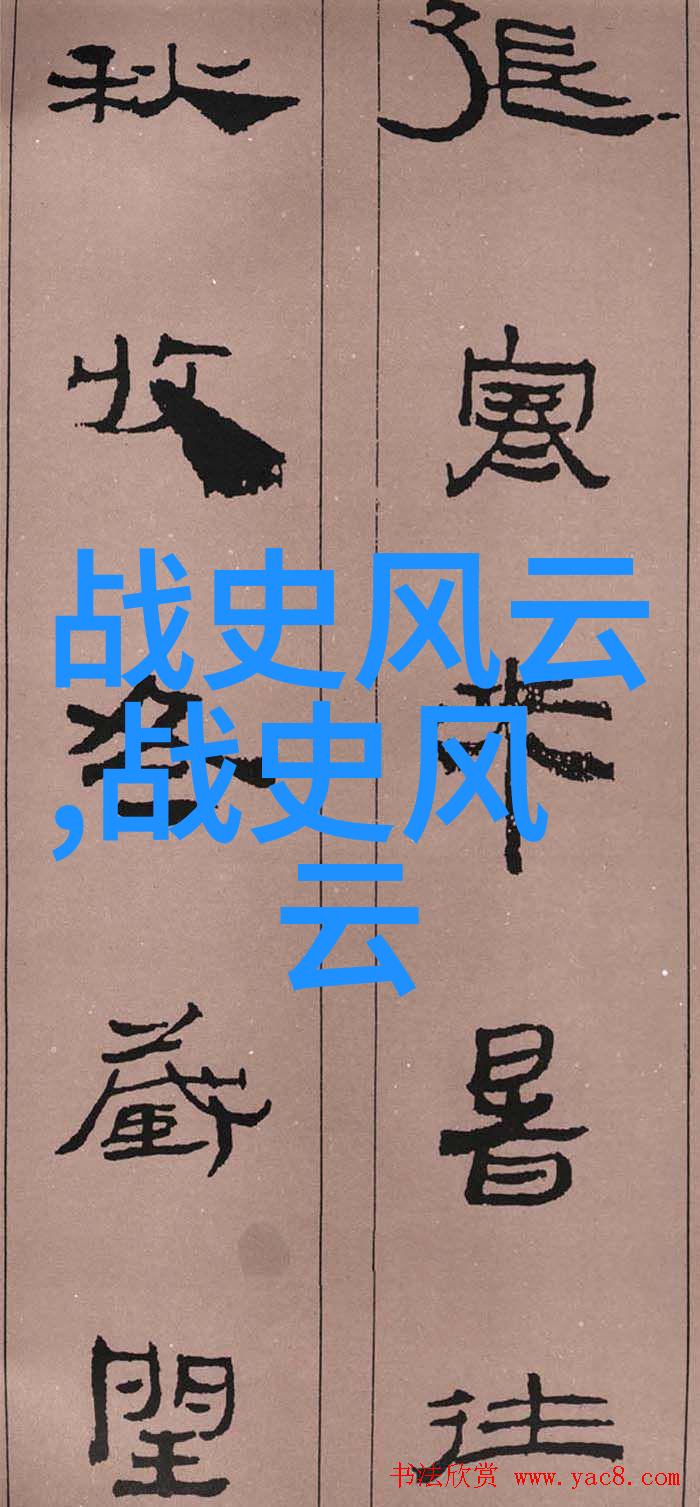 張寒來暑往
秋收冬藏閏
战史风云
,战史风
云
书法欣赏 www.yac8.com